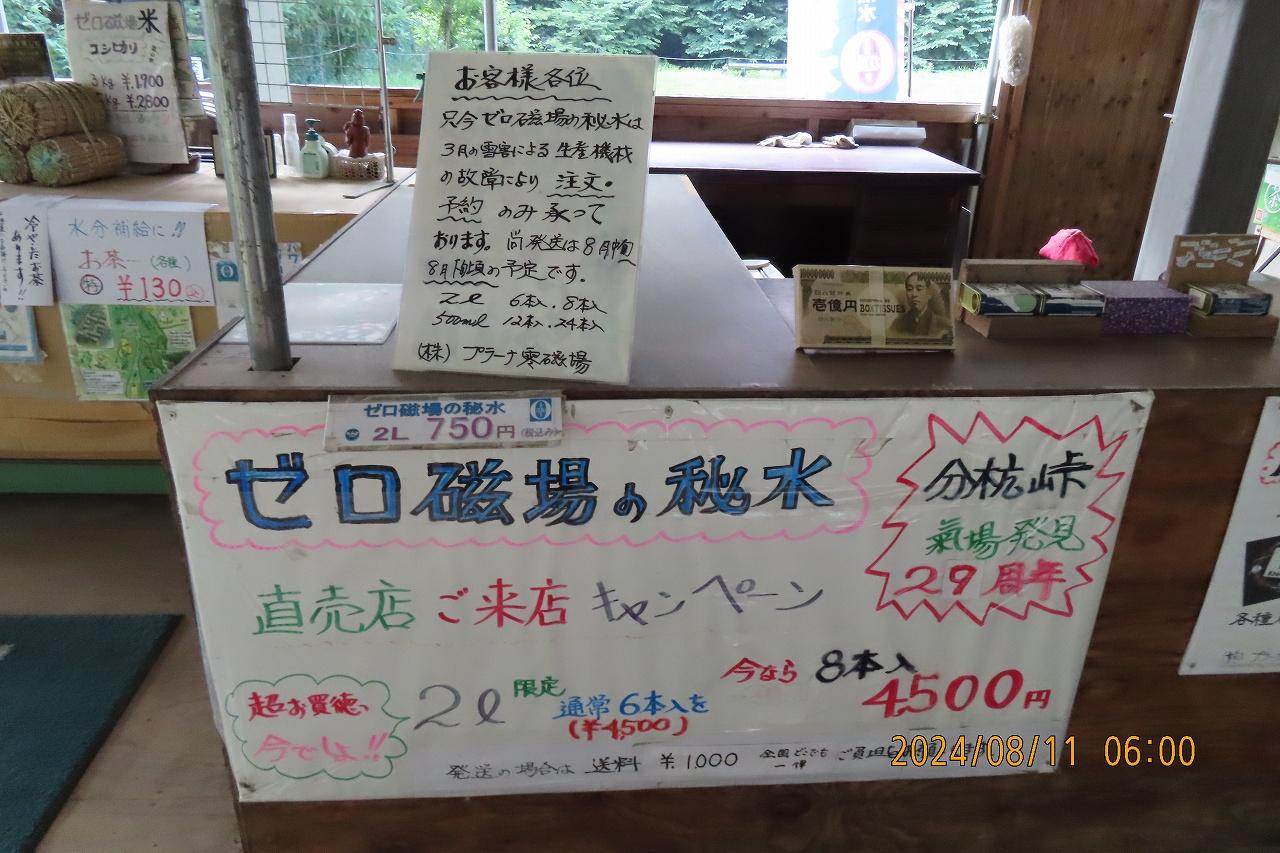 ゼロ磁場米
コシヒカリ
3kg ¥1,900
kg ¥2,800
お客様各位
只今ゼロ磁場の秘水は
3月の雪害による生産機械
の故障により 注文・
予約 のみ承って
おります。尚発送は8月中旬
8月下旬頃の予定です。
2ℓ 6本入・8本入
500ml 12本入・24本入
(株)プラーナ零磁場
冷やたお茶
あります!!
水分補給に!!
お茶… (各種)
¥130
壱億円
BOXTISSUES
ゼロ磁場の秘水
2L 750円(税込み)
ゼロ磁場の秘水
分杭峠
氣場発見
29周年
直売店 ご来店 キャンペーン
超お買徳っ
今でしょ!!
2ℓ 限定
通常6本入を
(¥4,500)
今なら 8本入
4,500円
発送の場合は 送料 ¥1,000 全国どこでも
一律
各種
2024/08/11 06:00